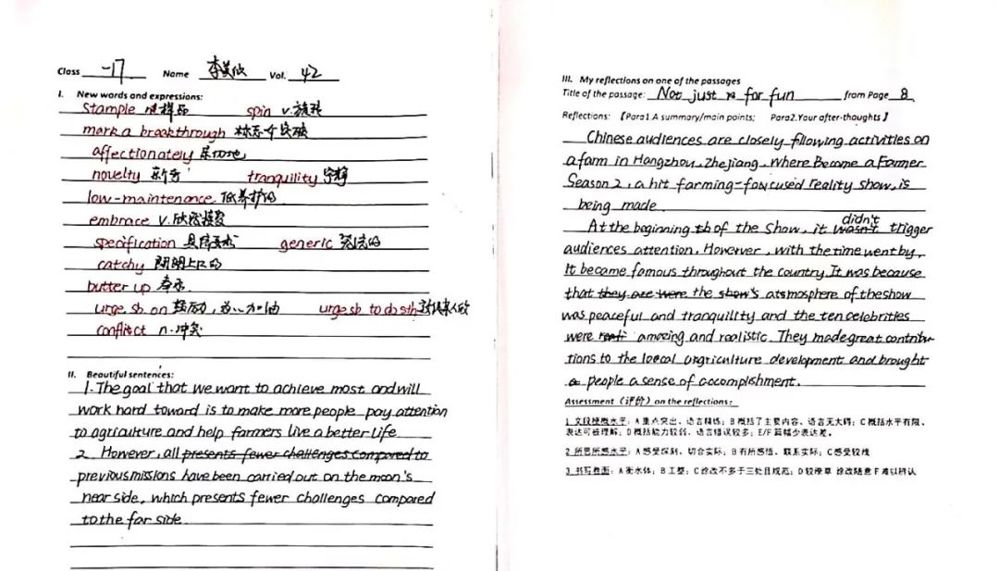 Class 一17 Name 李美欣 Vol. 42
I. New words and expressions:
Stample 使样品 spin v.旋转
mark a breakthrough 标志个突破
affectionately 亲切地
novelty 新奇 tranquility 宁静
low-maintenance 低养护的
embrace v.欣然接受
specification 具体要求 generic 泛泛的
catchy 朗朗上口的
butter up 奉承
urge sb on 鼓励，为…加油 urge sb to do sth
conflict n.冲突
II. Beautiful sentences:
1. The goal that we want to achieve most and will
work hard toward is to make more people pay attention
to agriculture and help farmers live a better life
2. However, all presents fewer challenges compared to
previous missions have been carried out on the moon's
near side, which presents fewer challenges compared
to the far side.
III. My reflections on one of the passages
Title of the passage: Not just for fun from Page 8
Reflections: 【Para1.A summary/main points; Para2.Your after-thoughts】
Chinese audiences are closely fillowing activities on
a farm in Hangzhou, Zhejiang, where Become a Farmer
Season 2, a hit farming-foucused reality show, is
being made.
At the beginning of the show, it didn't trigger
audiences attention. However, with the time went by,
It became famous throughout the country. It was because
that they are were the show's atsmosphere of the show
was peaceful and tranquility and the ten celebrities
were amazing and realistic. They made great contribu-
tions to the local argriculture development and brought
a people a sense of accomplishment.
Assessment (评价) on the reflections:
1.文段梗概水平：A 重点突出、语言精练；B 概括了主要内容、语言无大碍；C 概括水平有限、
表达可被理解；D 概括能力较弱、语言错误较多；E/F 篇幅少表达差。
2.所思所感水平：A 感受深刻、切合实际；B 有所感悟、联系实际；C 感受较浅
3.书写卷面：A 衡水体；B 工整；C 涂改不多于三处且规范；D 较潦草 涂改随意 F 难以辨认